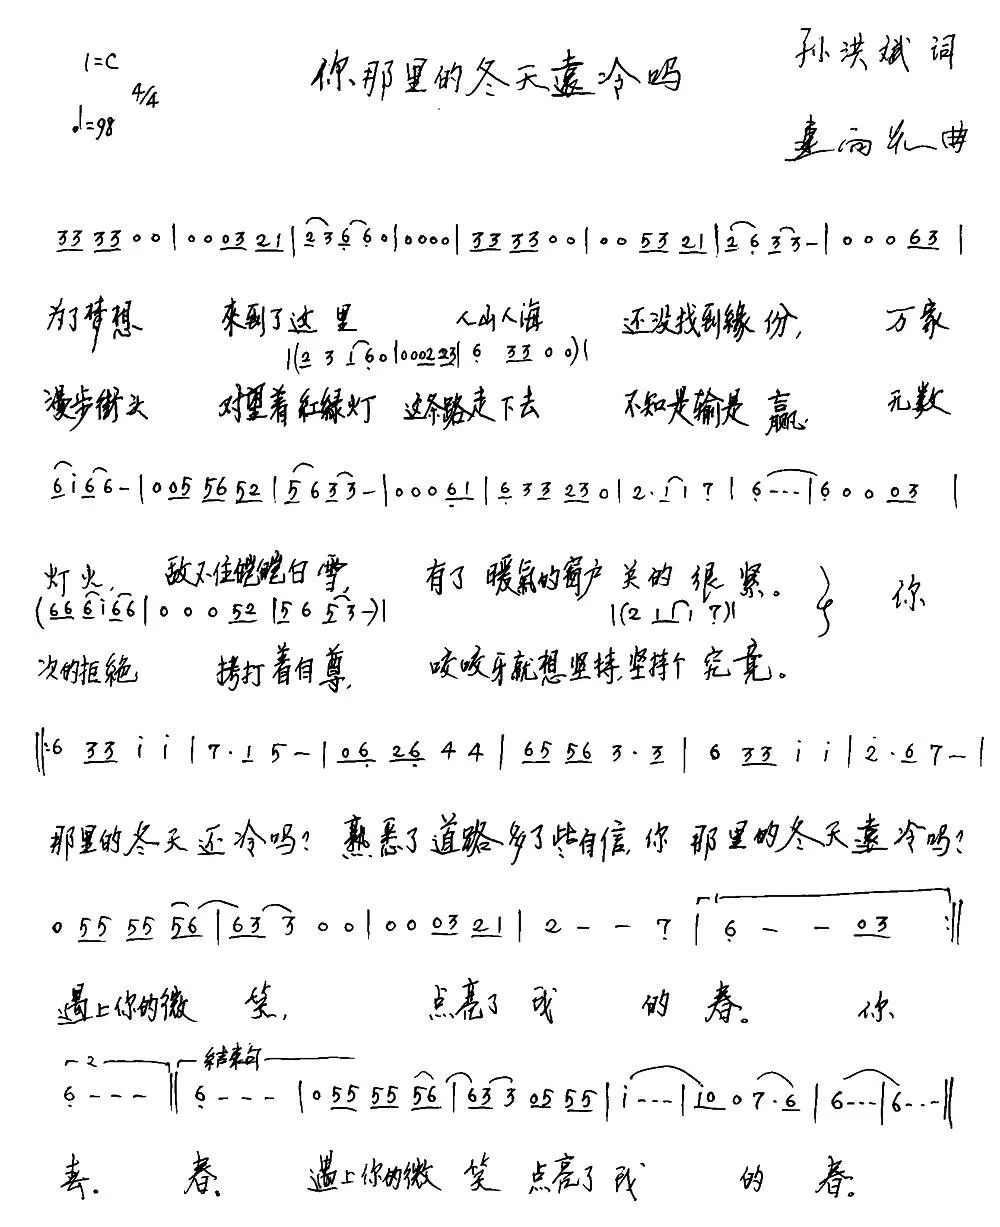 1=C 4/4
♩=98
你那里的冬天還冷吗
孙洪斌 词
曲
33 33 0 0 | 0 0 03 21 | 23 66 0 | 0000 | 33 33 0 0 | 0 0 53 21 | 26 33 - | 0 0 0 63 |
为了梦想 來到了这里 人山人海 还没找到緣份, 万家
|(2 3 1 6 0 | 000223 | 6 33 0 0)|
漫步街头 对望着红绿灯 这条路走下去 不知是输是赢. 无数
6i66 - | 005 56 52 | 5633 - | 00061 | 633 23 0 | 2·11 7 | 6--- | 6 0 0 03 |
灯火, 敌不住皑皑白雪, 有了暖氣的窗户关的很紧。 你
(666i66 | 0 0 0 52 | 56 53 -)| |(2 1 1 7)|
次的拒絶 拷打着自尊, 咬咬牙就想坚持,坚持个究竟。
‖:6 33 i i | 7·1 5 - | 06 26 4 4 | 65 56 3·3 | 6 33 i i | 2·6 7 - |
那里的冬天还冷吗? 熟悉了道路多了些自信, 你那里的冬天還冷吗?
0 55 55 56 | 63 3 0 0 | 0 0 03 21 | 2 - - 7 | 1 6 - - 03 :‖
遇上你的微笑, 点亮了我的春。 你
2 结束句
6 - - - ‖ 6 - - - | 0 55 55 56 | 63 3 05 55 | i --- | i0 0 7·6 | 6--- | 6--- ‖
春. 春. 遇上你的微笑 点亮了我的春。